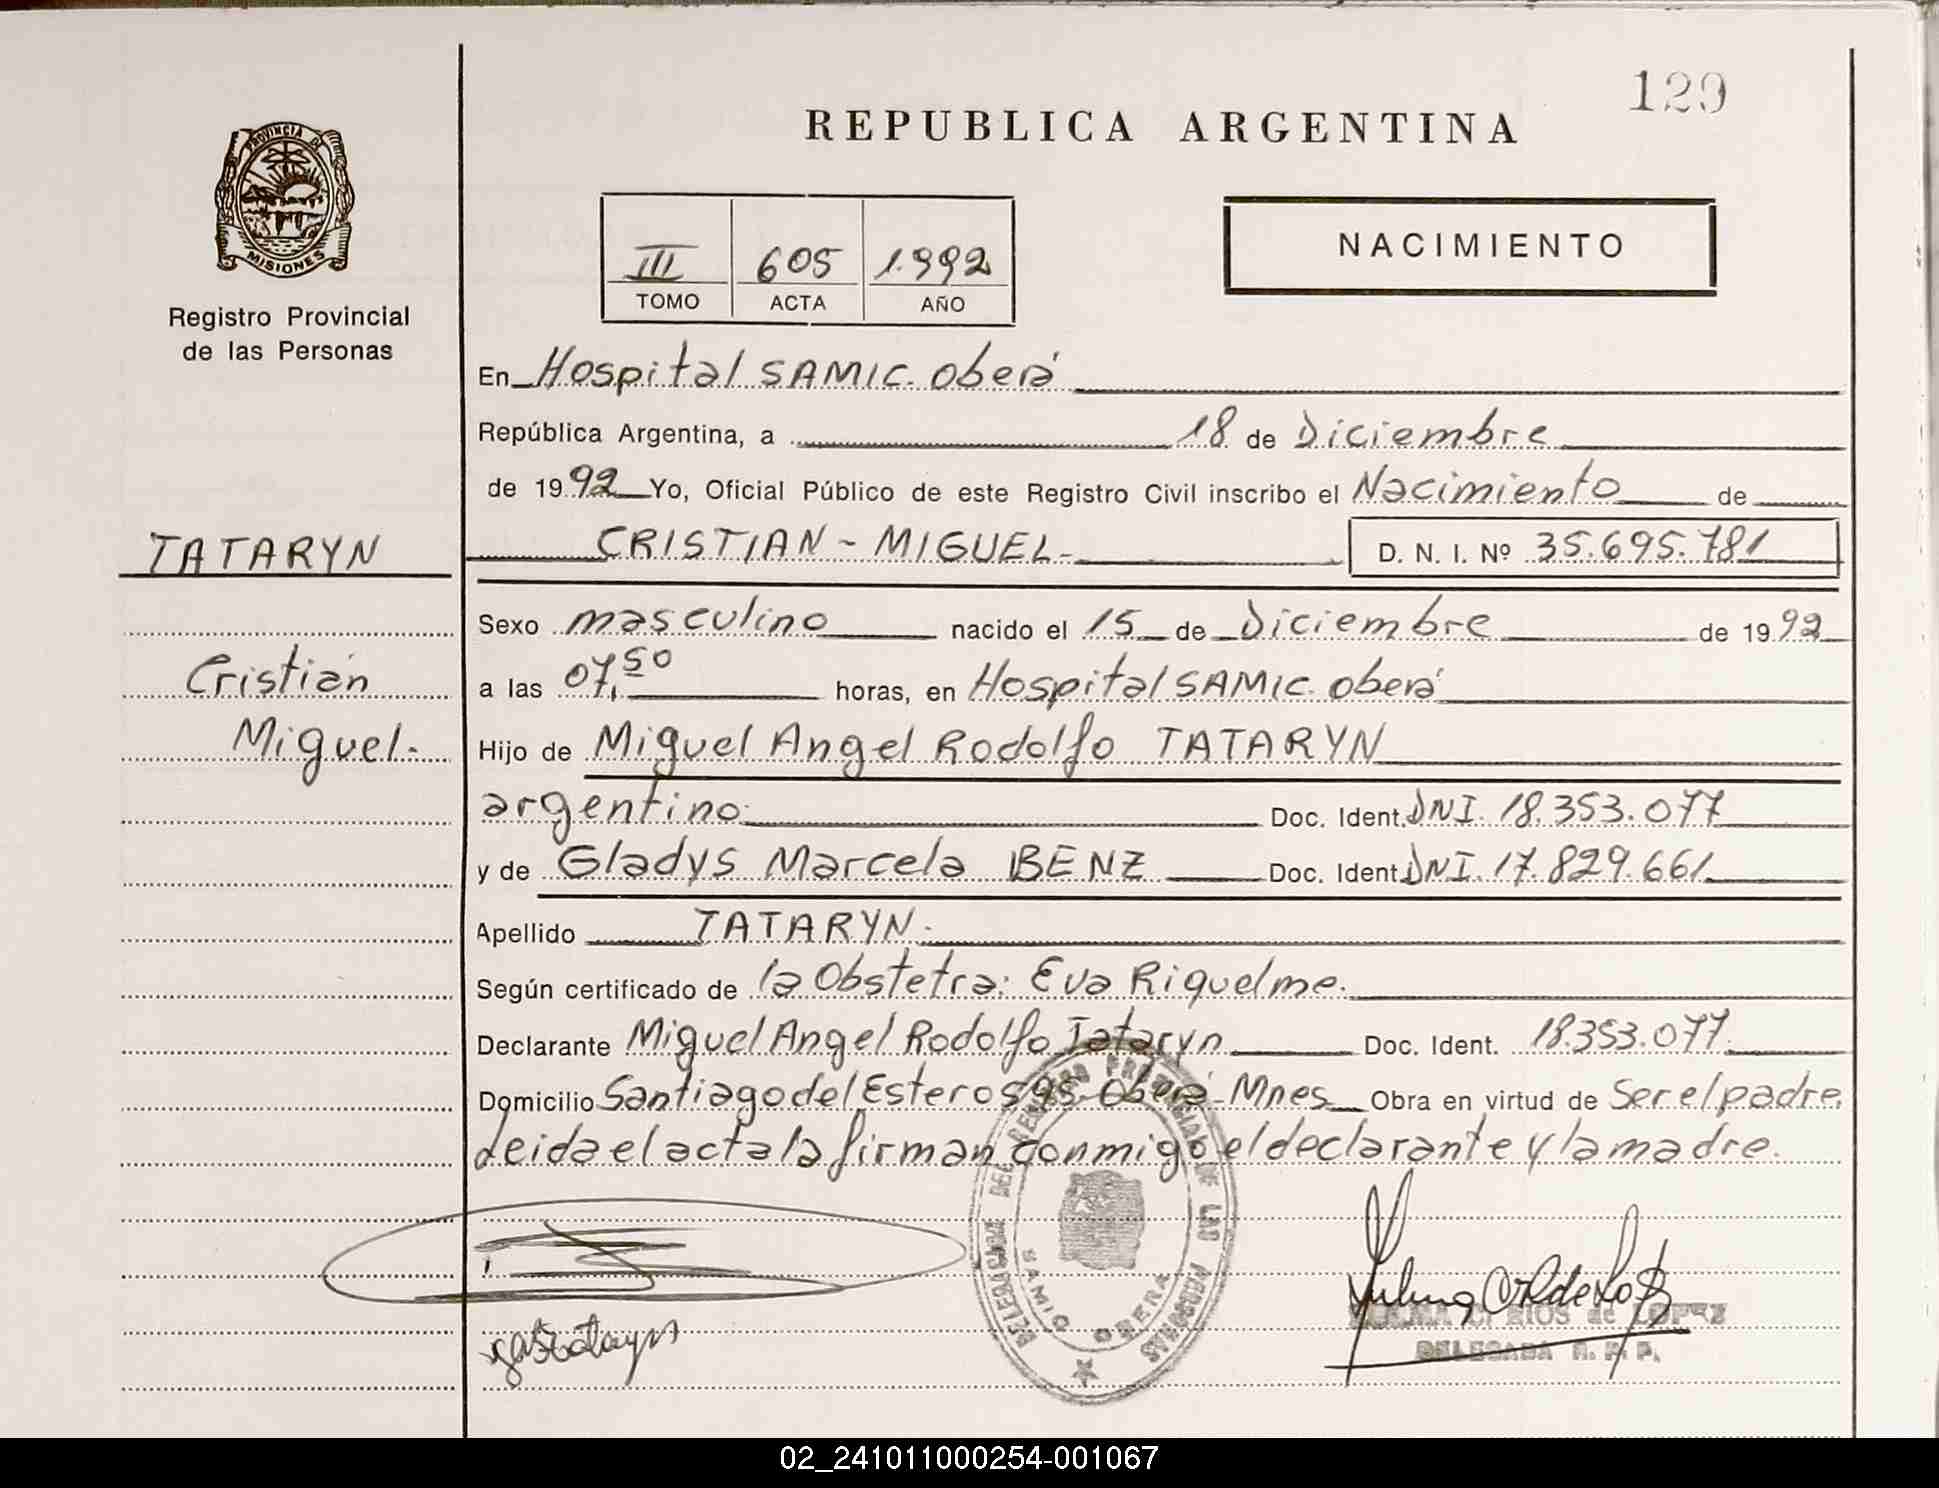 129
REPUBLICA ARGENTINA
PROVINCIA DE
MISIONES
Registro Provincial
de las Personas
III 605 1.992
TOMO ACTA AÑO
NACIMIENTO
En Hospital SAMIC. Oberá
República Argentina, a 18 de Diciembre
de 1992 Yo, Oficial Público de este Registro Civil inscribo el Nacimiento de
TATARYN
CRISTIAN - MIGUEL - D. N. I. Nº 35.695.781
Sexo masculino nacido el 15 de Diciembre de 1992
Cristián
a las 07,50 horas, en Hospital SAMIC. Oberá
Miguel.
Hijo de Miguel Angel Rodolfo TATARYN
argentino Doc. Ident. DNI. 18.353.077
y de Gladys Marcela BENZ Doc. Ident. DNI. 17.829.661
Apellido TATARYN.
Según certificado de la Obstetra: Eva Riquelme.
Declarante Miguel Angel Rodolfo Tataryn Doc. Ident. 18.353.077
Domicilio Santiago del Estero Oberá - Mnes Obra en virtud de Ser el padre,
Leida el acta la firman conmigo el declarante y la madre.
DELEGACION DEL REGISTRO PROVINCIAL DE LAS PERSONAS
SAMIC OBERA
RIOS de LOPEZ
DELEGADA R. P. P.
02_241011000254-001067